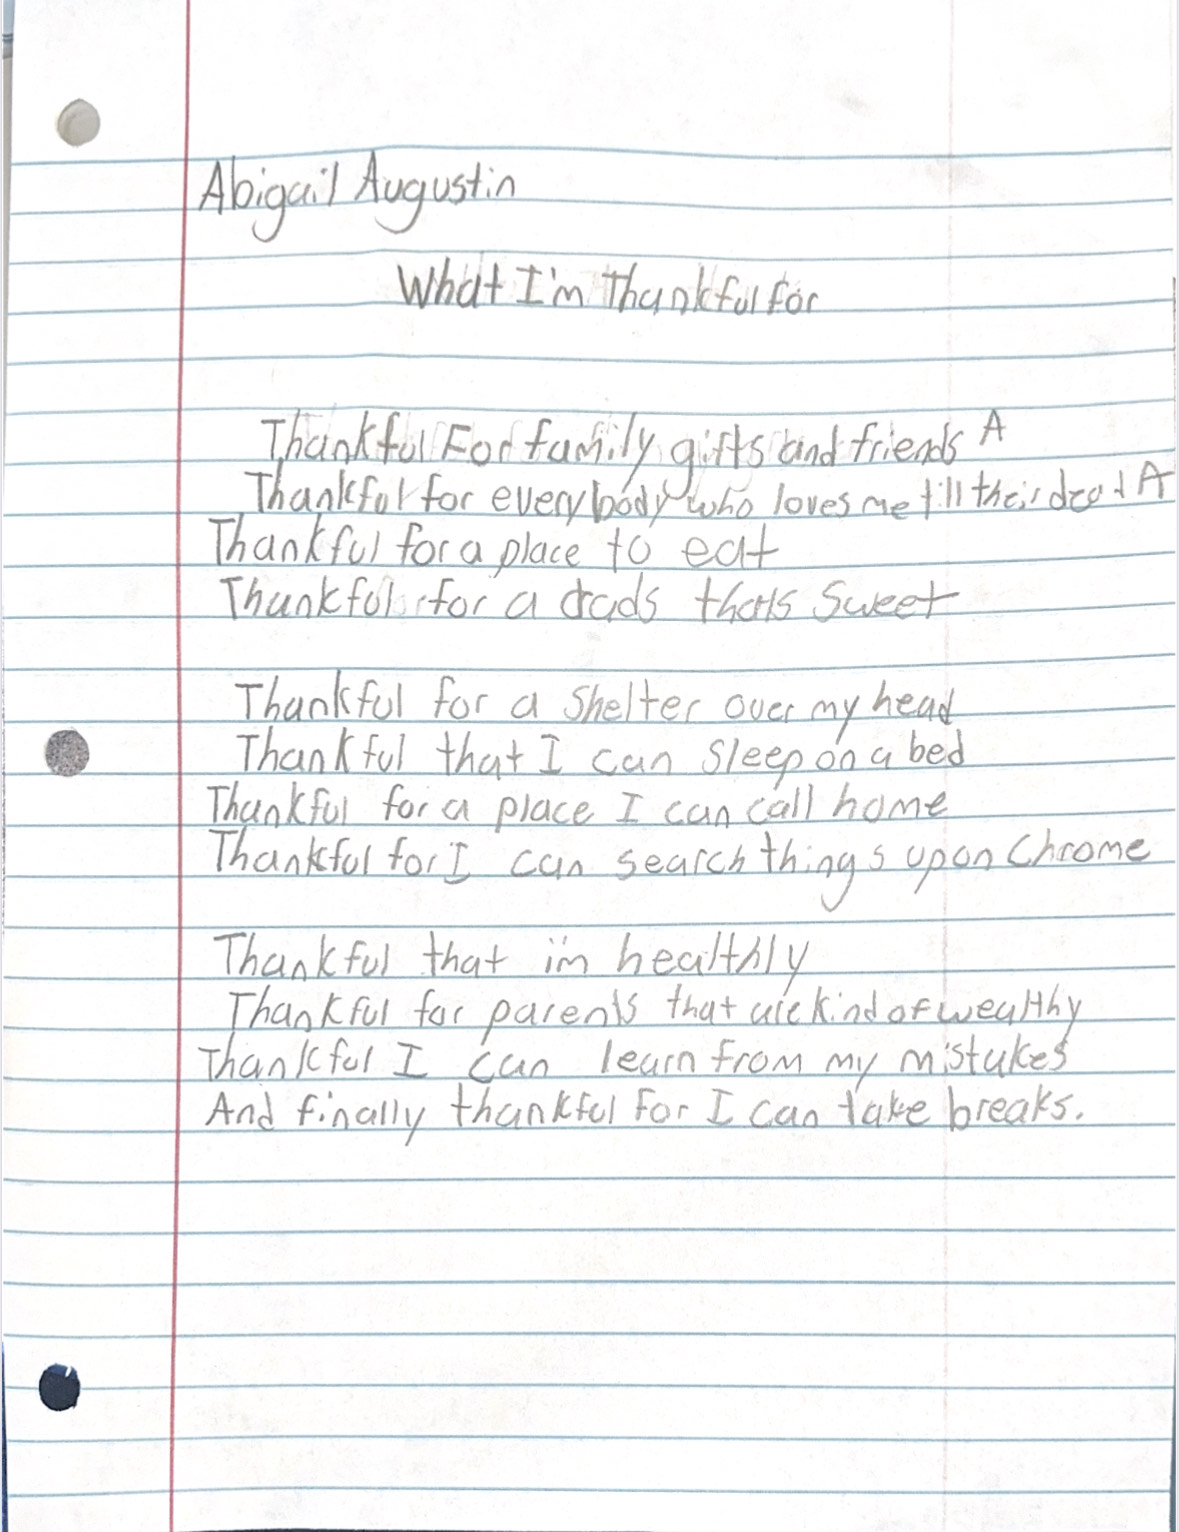 Abigail Augustin
What I'm Thankful for
Thankful For family gifts and friends A
Thankful for everybody who loves me till their dead A
Thankful for a place to eat
Thankful for a dads thats Sweet
Thankful for a Shelter over my head
Thankful that I can sleep on a bed
Thankful for a place I can call home
Thankful for I can search things upon Chrome
Thankful that i'm healthly
Thankful for parents that are kind of wealthy
Thankful I can learn from my mistakes
And finally thankful For I can take breaks.